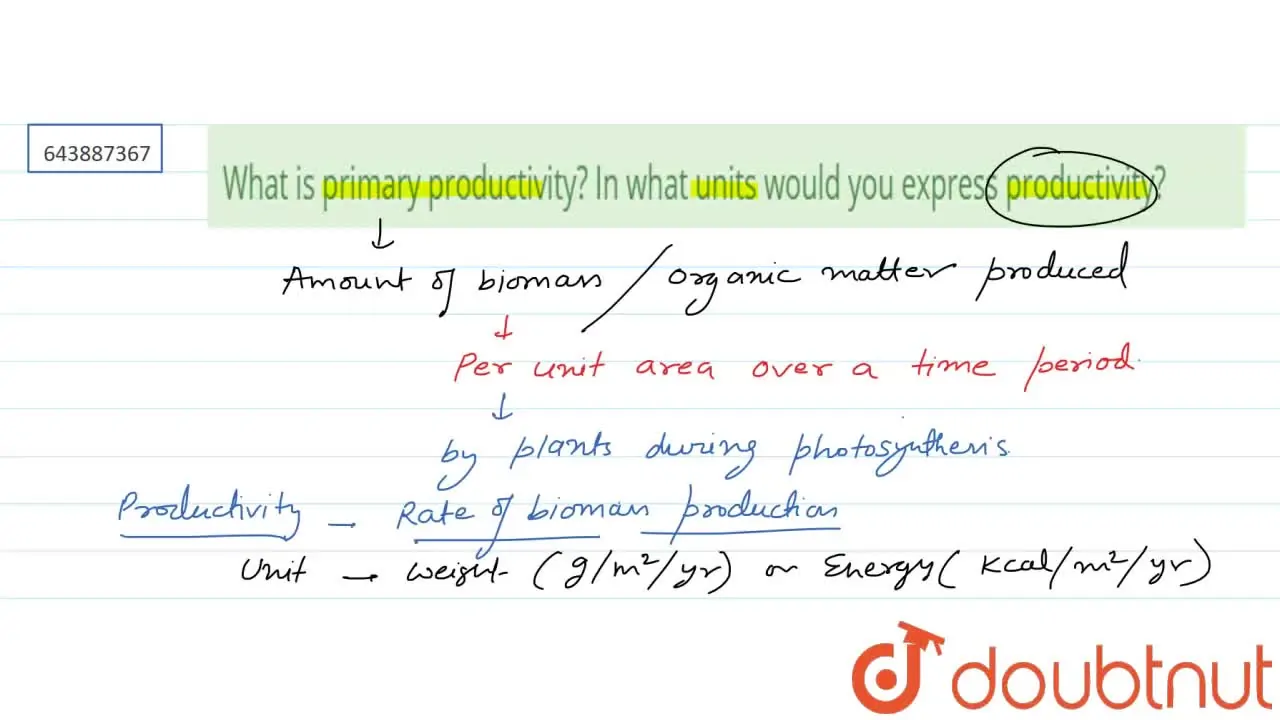 643887367
What is primary productivity? In what units would you express productivity?
Amount of biomass / organic matter produced
Per unit area over a time period.
by plants during photosynthesis.
Productivity - Rate of biomass production
Unit - weight (g/m²/yr) or Energy (Kcal/m²/yr)
doubtnut